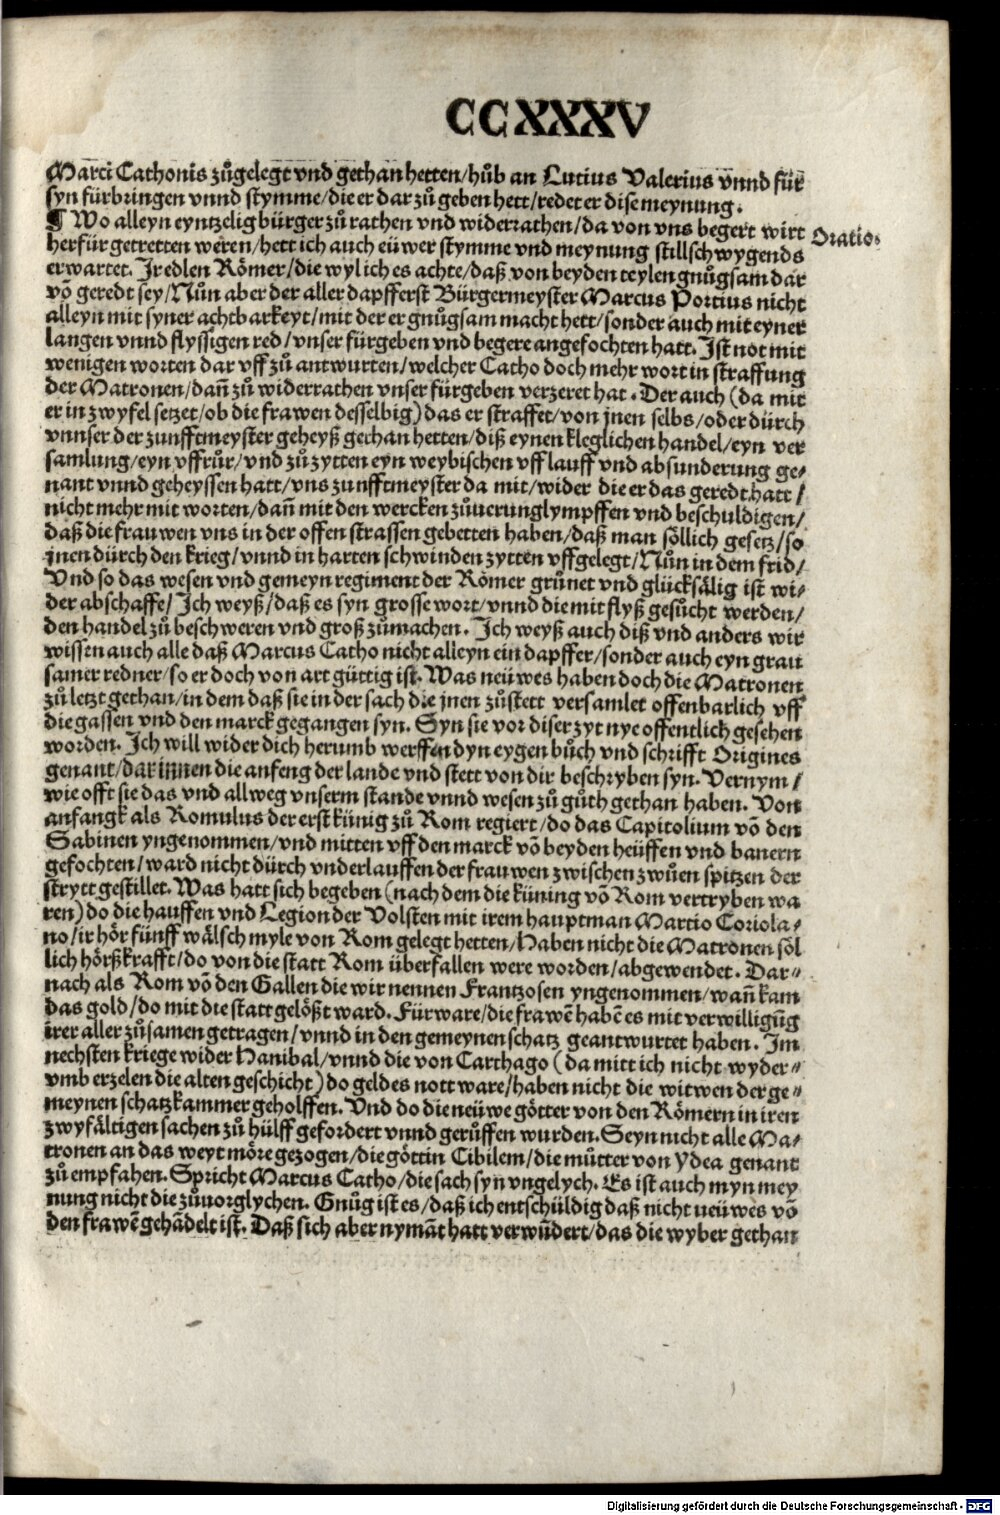 CCXXXV
Marci Cathonis zůgelegt vnd gethan hetten/hůb an Lutius Valerius vnnd für
syn fürbringen vnnd stymme/die er dar zů geben hett/redet er dise meynung.
¶ Wo alleyn eyntzelig bürger zů rathen vnd widerrathen/da von vns begert wirt
Oratio.
herfür getretten weren/hett ich auch eüwer stymme vnd meynung stillschwygends
erwartet. Ir edlen Römer/die wyl ich es achte/daß von beyden teylen gnůgsam dar
võ geredt sey/Nůn aber der aller dapfferst Bürgermeyster Marcus Portius nicht
alleyn mit syner achtbarkeyt/mit der er gnůgsam macht hett/sonder auch mit eyner
langen vnnd flyssigen red/vnser fürgeben vnd begere angefochten hatt. Ist not mit
wenigen worten dar vff zů antwurten/welcher Catho doch mehr wort in straffung
der Matronen/dañ zů widerrathen vnser fürgeben verzeret hat. Der auch (da mit
er in zwyfel setzet/ob die frawen desselbig) das er straffet/von jnen selbs/oder dürch
vnnser der zunfftmeyster geheyß gethan hetten/diß eynen kleglichen handel/eyn ver
samlung/eyn vffrůr/vnd zů zytten eyn weybischen vfflauff vnd absunderung ge⸗
nant vnnd geheyssen hatt/vns zunfftmeyster da mit/wider die er das geredt hatt/
nicht mehr mit worten/dañ mit den wercken zůuerunglympffen vnd beschuldigen/
daß die frauwen vns in der offen strassen gebetten haben/daß man söllich gesetz/so
jnen dürch den krieg/vnnd in harten schwinden zytten vffgelegt/Nůn in dem frid/
Vnd so das wesen vnd gemeyn regiment der Römer grůnet vnd glücksälig ist wi⸗
der abschaffe/ Ich weyß/daß es syn grosse wort/vnnd die mit flyß gesůcht werden/
den handel zů beschweren vnd groß zůmachen. Ich weyß auch diß vnd anders wir
wissen auch alle daß Marcus Catho nicht alleyn ein dapffer/sonder auch eyn grau
samer redner/so er doch von art güttig ist. Was neüwes haben doch die Matronen
zů letzt gethan/in dem daß sie in der sach die jnen zůstett versamlet offenbarlich vff
die gassen vnd den marck gegangen syn. Syn sie vor diser zyt nye offentlich gesehen
worden. Ich will wider dich herumb werffen dyn eygen bůch vnd schrifft Origines
genant/dar jnnen die anfeng der lande vnd stett von dir beschryben syn. Vernym/
wie offt sie das vnd allweg vnserm stande vnnd wesen zů gůth gethan haben. Von
anfangk als Romulus der erst künig zů Rom regiert/do das Capitolium võ den
Sabinen yngenommen/vnd mitten vff den marck võ beyden heüffen vnd banern
gefochten/ward nicht dürch vnderlauffen der frauwen zwischen zwůen spitzen der
strytt gestillet. Was hatt sich begeben (nach dem die küning võ Rom vertryben wa
ren) do die hauffen vnd Legion der Volsten mit irem hauptman Martio Coriola⸗
no/ir hör fünff wälsch myle von Rom gelegt hetten/Haben nicht die Matronen söl
lich hörßkrafft/do von die statt Rom überfallen were worden/abgewendet. Dar⸗
nach als Rom võ den Gallen die wir nennen Frantzosen yngenommen/wañ kam
das gold/do mit die statt gelößt ward. Fürware/die frawẽ habẽ es mit verwilligũg
irer aller zůsamen getragen/vnnd in den gemeynen schatz geantwurtet haben. Im
nechsten kriege wider Hanibal/vnnd die von Carthago (da mitt ich nicht wyder⸗
vmb erzelen die alten geschicht) do geldes nott ware/haben nicht die witwen der ge⸗
meynen schatzkammer geholffen. Vnd do die neüwe götter von den Römern in iren
zwyfältigen sachen zů hülff gefordert vnnd gerůffen wurden. Seyn nicht alle Ma⸗
tronen an das weyt möre gezogen/die göttin Cibilem/die můtter von Ydea genant
zů empfahen. Spricht Marcus Catho/die sach syn vngelych. Es ist auch myn mey
nung nicht die zůuorglychen. Gnůg ist es/daß ich entschüldig daß nicht neüwes võ
den frawẽ gehãdelt ist. Daß sich aber nymãt hatt verwũdert/das die wyber gethan
Digitalisierung gefördert durch die Deutsche Forschungsgemeinschaft - DFG